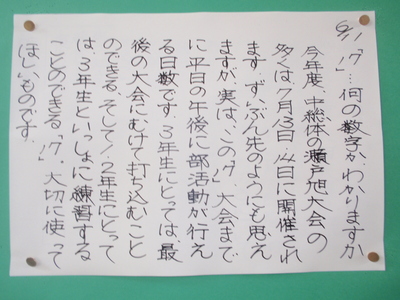 6/11 「17」…何の数字かわかりますか
今年度、中総体の瀬戸旭大会の
多くは7月13日・14日に開催され
ます。ずいぶん先のようにも思え
ますが、実は、この「17」、大会まで
に平日の午後に部活動が行え
る日数です。3年生にとっては、最
後の大会にむけて打ち込むこと
のできる、そして1、2年生にとって
は、3年生といっしょに練習する
ことのできる「17」。大切に使って
ほしいものです。